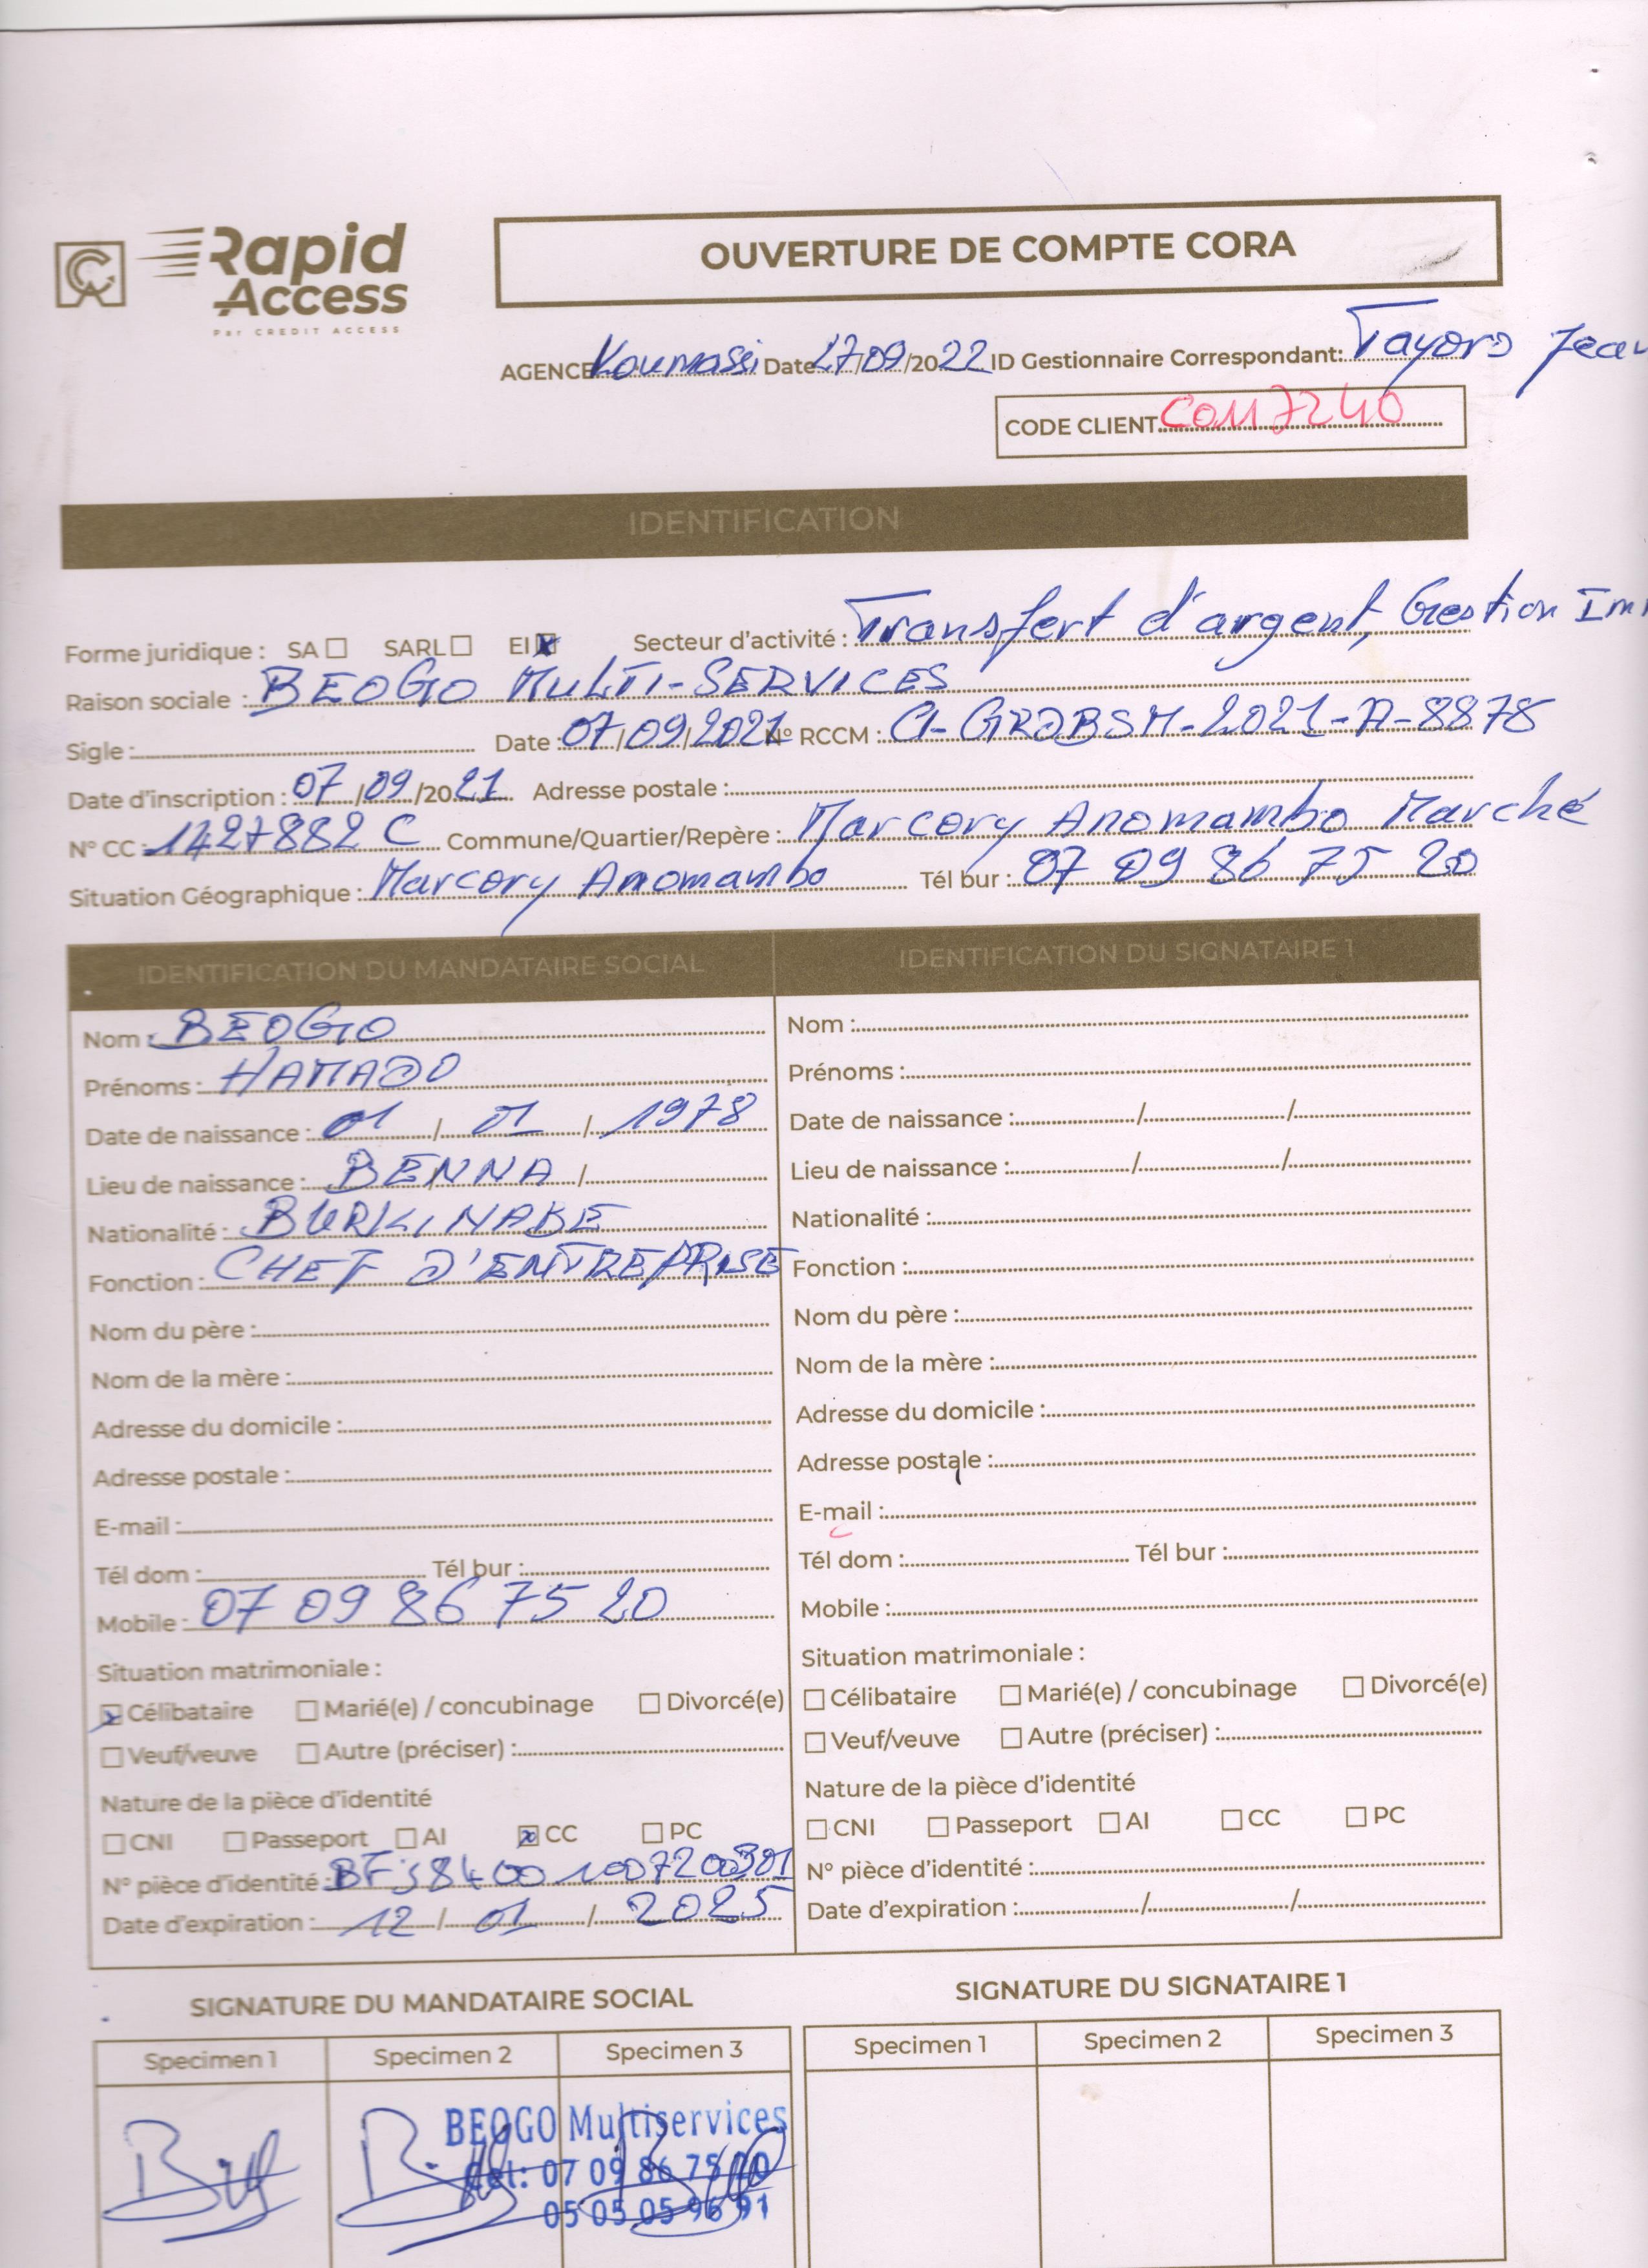 Rapid
Access
Par CREDIT ACCESS
OUVERTURE DE COMPTE CORA
AGENCE Koumassi Date 27/09/2022 ID Gestionnaire Correspondant: Tayoro Jean
CODE CLIENT C0117240
IDENTIFICATION
Forme juridique : SA ☐ SARL ☐ EI ☒ Secteur d'activité : Transfert d'argent, Gestion Imm
Raison sociale : BEOGO MULTI-SERVICES
Sigle : Date : 07/09/2021 N° RCCM : CI-GRDBSM-2021-A-8878
Date d'inscription : 07/09/2021 Adresse postale :
N° CC : 1427882 C Commune/Quartier/Repère : Marcory Anomambo Marché
Situation Géographique : Marcory Anomambo Tél bur : 07 09 86 75 20
IDENTIFICATION DU MANDATAIRE SOCIAL
Nom : BEOGO
Prénoms : HAMADO
Date de naissance : 01 / 01 / 1978
Lieu de naissance : BENNA /
Nationalité : BURKINABE
Fonction : CHEF D'ENTREPRISE
Nom du père :
Nom de la mère :
Adresse du domicile :
Adresse postale :
E-mail :
Tél dom : Tél bur :
Mobile : 07 09 86 75 20
Situation matrimoniale :
☒ Célibataire ☐ Marié(e) / concubinage ☐ Divorcé(e)
☐ Veuf/veuve ☐ Autre (préciser) :
Nature de la pièce d'identité
☐ CNI ☐ Passeport ☐ AI ☒ CC ☐ PC
N° pièce d'identité :
Date d'expiration : 12 / 01 / 2025
IDENTIFICATION DU SIGNATAIRE 1
Nom :
Prénoms :
Date de naissance : / /
Lieu de naissance : / /
Nationalité :
Fonction :
Nom du père :
Nom de la mère :
Adresse du domicile :
Adresse postale :
E-mail :
Tél dom : Tél bur :
Mobile :
Situation matrimoniale :
☐ Célibataire ☐ Marié(e) / concubinage ☐ Divorcé(e)
☐ Veuf/veuve ☐ Autre (préciser) :
Nature de la pièce d'identité
☐ CNI ☐ Passeport ☐ AI ☐ CC ☐ PC
N° pièce d'identité :
Date d'expiration : / /
SIGNATURE DU MANDATAIRE SOCIAL
Specimen 1 Specimen 2 Specimen 3
BEOGO Multiservices
Cel: 07 09 86 75 20
05 05 05 96 91
SIGNATURE DU SIGNATAIRE 1
Specimen 1 Specimen 2 Specimen 3